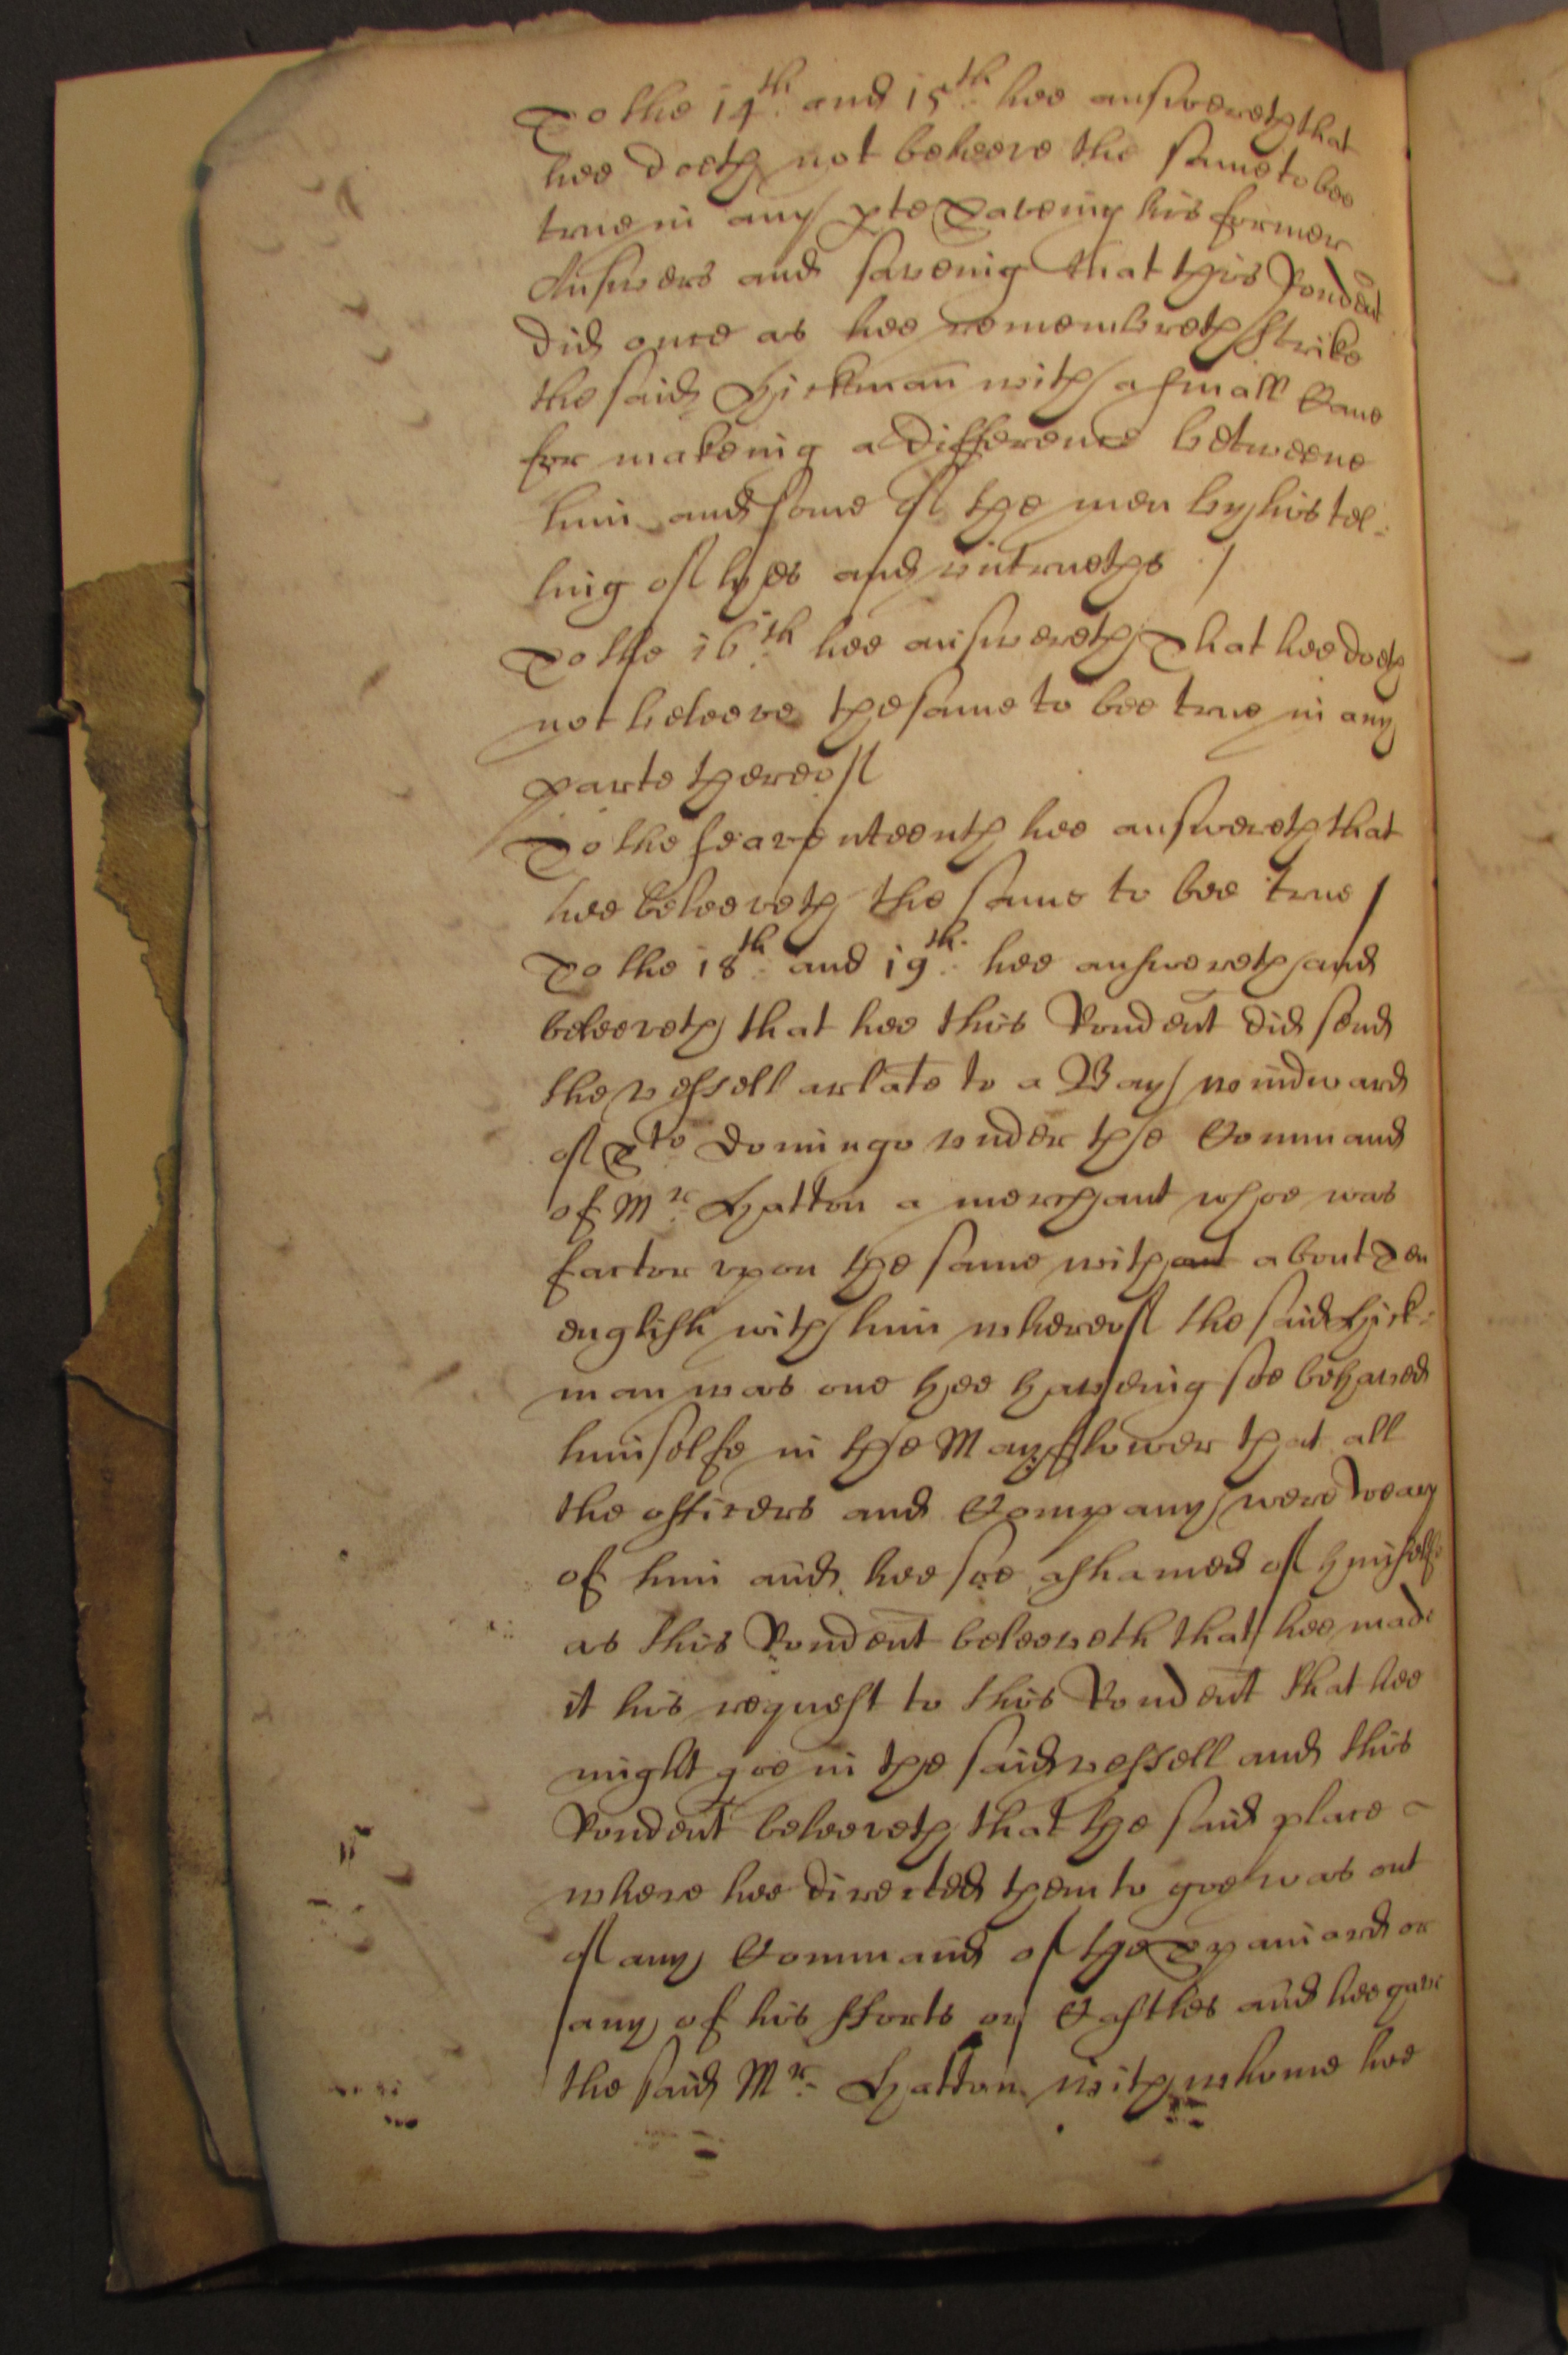 To the 14th. and 15th. hee answereth that
hee doeth not beleeve the same to bee
true in any pte Saveing his former
Answers and saveing that this Rondent
did once as hee remembreth strike
the said Hickman with a small Cane
for makeing a difference betweene
him and some of the men by his tel:
ling of lyes and untrueths /
To the 16th. hee answereth That hee doeth
not beleeve the same to bee true in any
parte thereof
To the seaventeenth hee answereth that
hee beleeveth the same to bee true /
To the 18th. and 19th. hee answereth and
beleeveth that hee this Rondent did send
the vessell arlate to a Bay windward
of Sto Domingo under the Command
of Mr. Hatton a merchant whoe was
factor upon the same with about Ten
english with him whereof the said Hick:
man was one hee haveing soe behaved
himselfe in the Mayfflower that all
the officers and Company were weary
of him and hee soe ashamed of himselfe
as this Rondent beleeveth that hee made
it his request to this Rondent that hee
might goe in the said vessell and this
Rondent beleeveth that the said place
where hee directed them to goe was out
of any Command of the Spaniard or
any of his fforts or Castles and hee gave
the said Mr. Hatton with whome hee